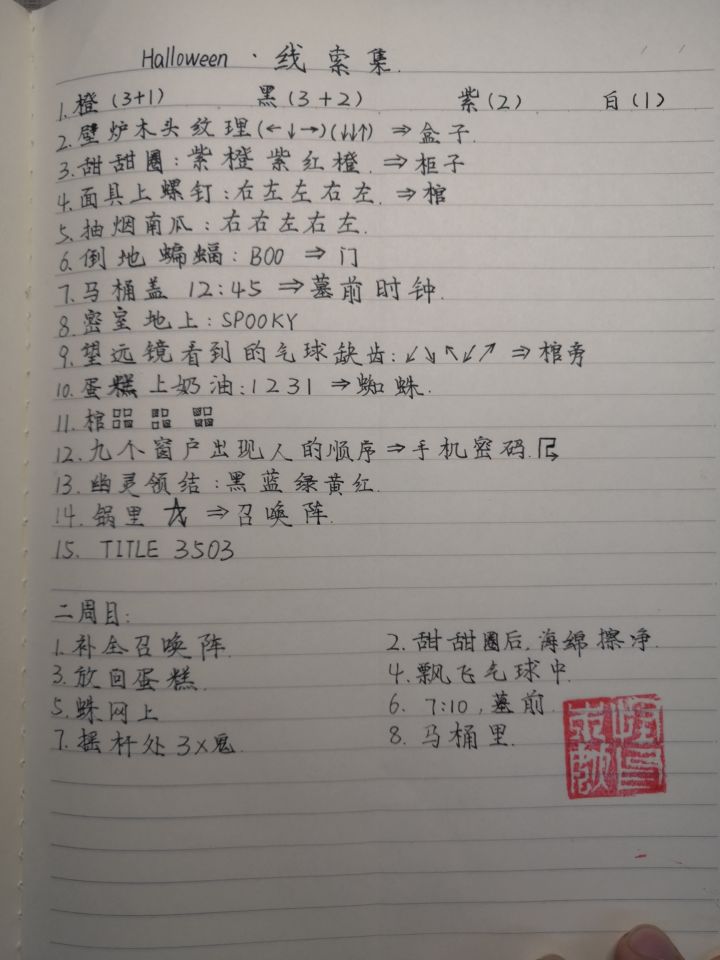 Halloween · 线索集.
1. 橙(3+1) 黑(3+2) 紫(2) 白(1)
2. 壁炉木头纹理(←↓→)(↓↓↑) ⇒ 盒子.
3. 甜甜圈: 紫橙紫红橙. ⇒ 柜子
4. 面具上螺钉: 右左左右左. ⇒ 棺
5. 抽烟南瓜: 右右左右左.
6. 倒地蝙蝠: BOO ⇒ 门
7. 马桶盖 12:45 ⇒ 墓前时钟.
8. 密室地上: SPOOKY
9. 望远镜看到的气球缺齿: ↙↘↖↙↗ ⇒ 棺旁
10. 蛋糕上奶油: 1231 ⇒ 蜘蛛.
11. 棺
12. 九个窗户出现人的顺序 ⇒ 手机密码.
13. 幽灵领结: 黑蓝绿黄红.
14. 锅里 ☆ ⇒ 召唤阵.
15. TITLE 3503
二周目:
1. 补全召唤阵. 2. 甜甜圈后, 海绵擦净.
3. 放回蛋糕. 4. 飘飞气球中.
5. 蛛网上 6. 7:10, 墓前
7. 摇杆处 3×鬼. 8. 马桶里.